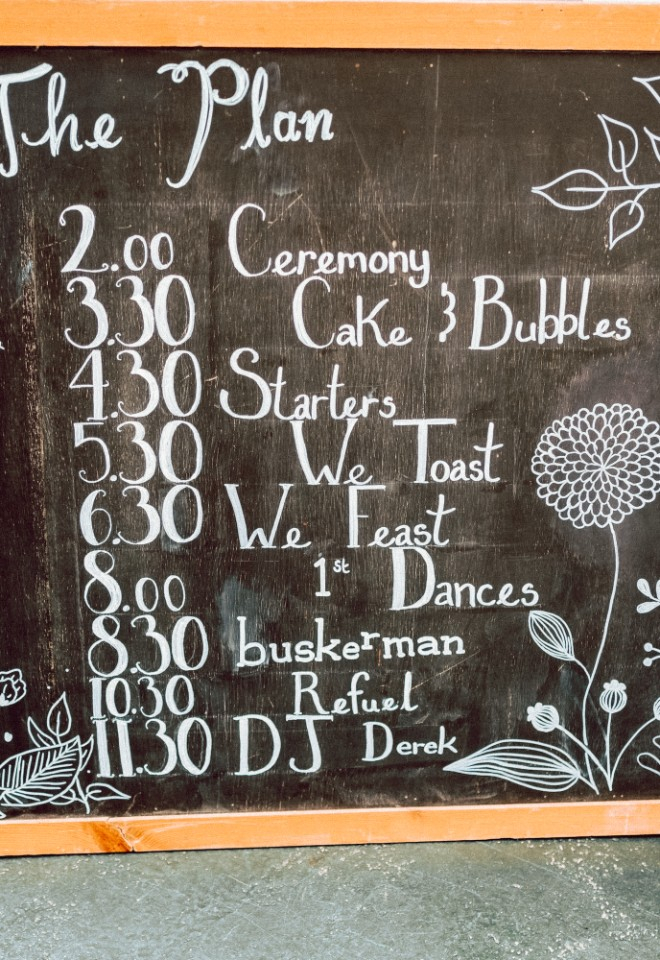 The Plan
2.00 Ceremony
3.30 Cake & Bubbles
4.30 Starters
5.30 We Toast
6.30 We Feast
8.00 1st Dances
8.30 buskerman
10.30 Refuel
11.30 DJ Derek